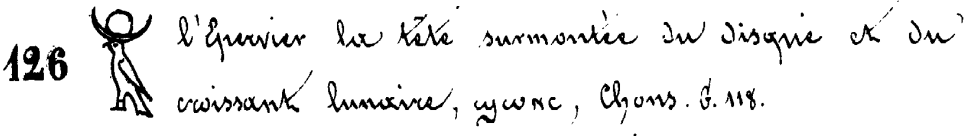 126 l'Epervier la tété surmontée du disque et du
croissant lunaire, Chons. G. 118.